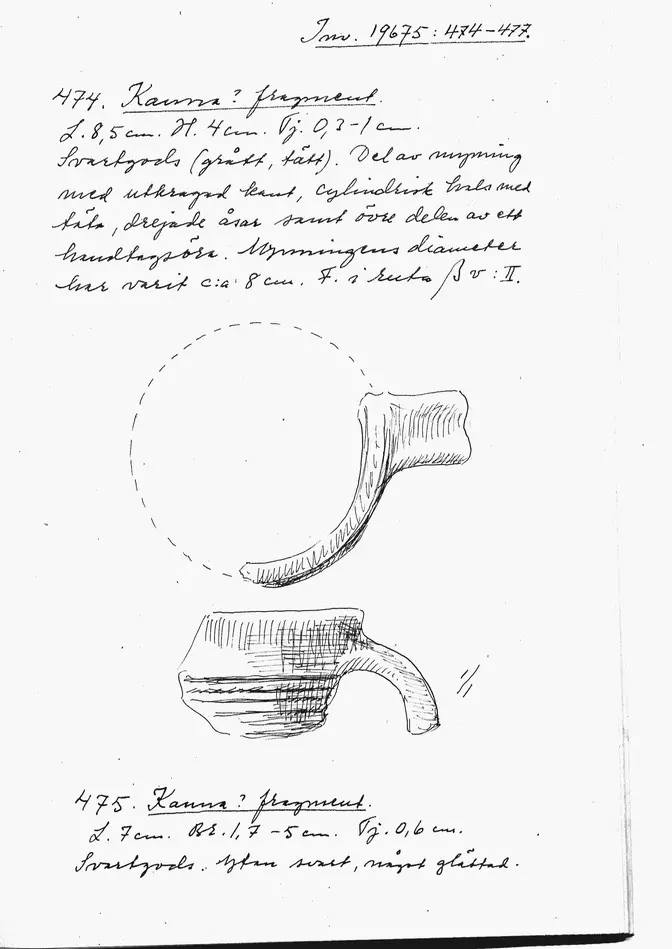 Inv. 19675:474-477.
474. Kanna? fragment.
L. 8,5 cm. H. 4 cm. Tj. 0,3-1 cm.
Svartgods (grått, tätt). Del av mynning
med utkragad kant, cylindrisk hals med
täta, drejade åsar samt övre delen av ett
handtagsöra. Mynningens diameter
har varit c:a 8 cm. F. i ruta β v : II.
1/1
475. Kanna? fragment.
L. 7 cm. Br. 1,7-5 cm. Tj. 0,6 cm.
Svartgods. Ytan svart, något glättad.